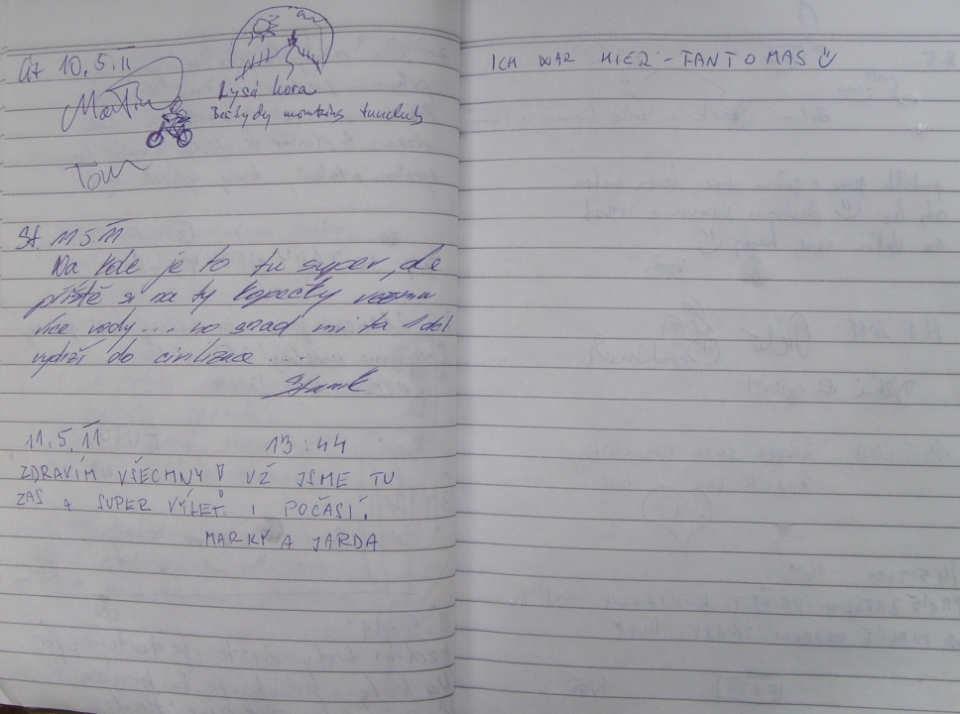 Út 10.5.11
Martin
Lysá hora
Beskydy
Tom
St. 11.5.11
Na kole je to tu super, ale
příště si na ty kopečky vezmu
více vody... no snad mi ta 1 del
vydrží do civilizace...
11.5.11 13:44
ZDRAVÍM VŠECHNY UŽ JSME TU
ZAS A SUPER VÝLET I POČASÍ.
MARKY A JARDA
ICH WAR HIER - FANTOMAS